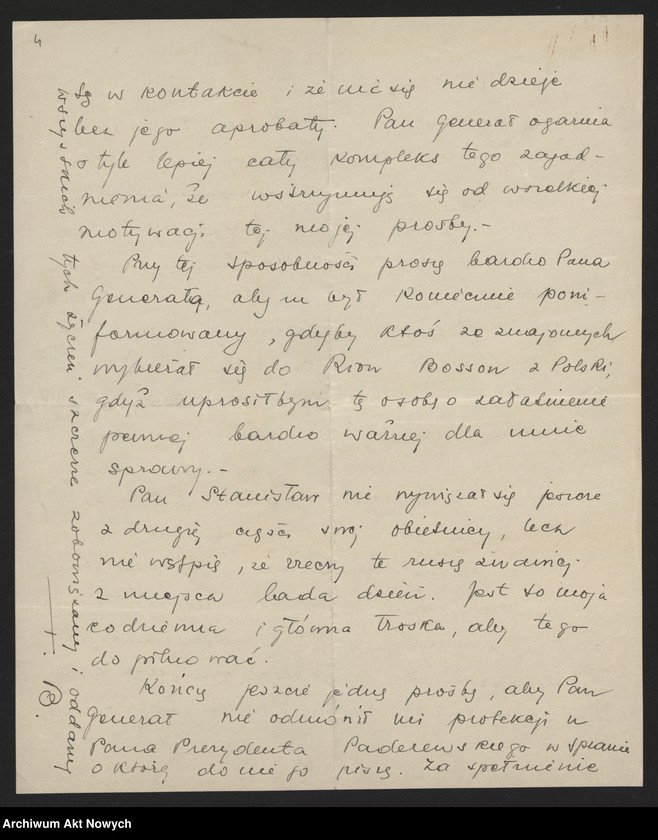 4
są w kontakcie i że nic się nie dzieje
bez jego aprobaty. Pan Generał ogarnia
o tyle lepiej cały kompleks tego zagad-
nienia, że wstrzymuję się od wszelkiej
motywacji tej mojej prośby.-
Przy tej sposobności proszę bardzo Pana
Generała, abym był koniecznie poin-
formowany, gdyby ktoś ze znajomych
wybierał się do Rion Bosson z Polski,
gdyż uprosiłbym tę osobę o załatwienie
pewnej bardzo ważnej dla mnie
sprawy.-
Pan Stanisław nie wywiązał się jeszcze
z drugiej części swej obietnicy, lecz
nie wątpię, że rzeczy te ruszą
z miejsca lada dzień. Jest to moja
codzienna i główna troska, aby tego
dopilnować.
Kończę jeszcze jedną prośbą, aby Pan
Generał nie odmówił mi protekcji u
Pana Prezydenta Paderewskiego w sprawie
o którą do niego piszę. Za spełnienie
wszystkich tych życzeń szczerze zobowiązany i oddany
B.
Archiwum Akt Nowych